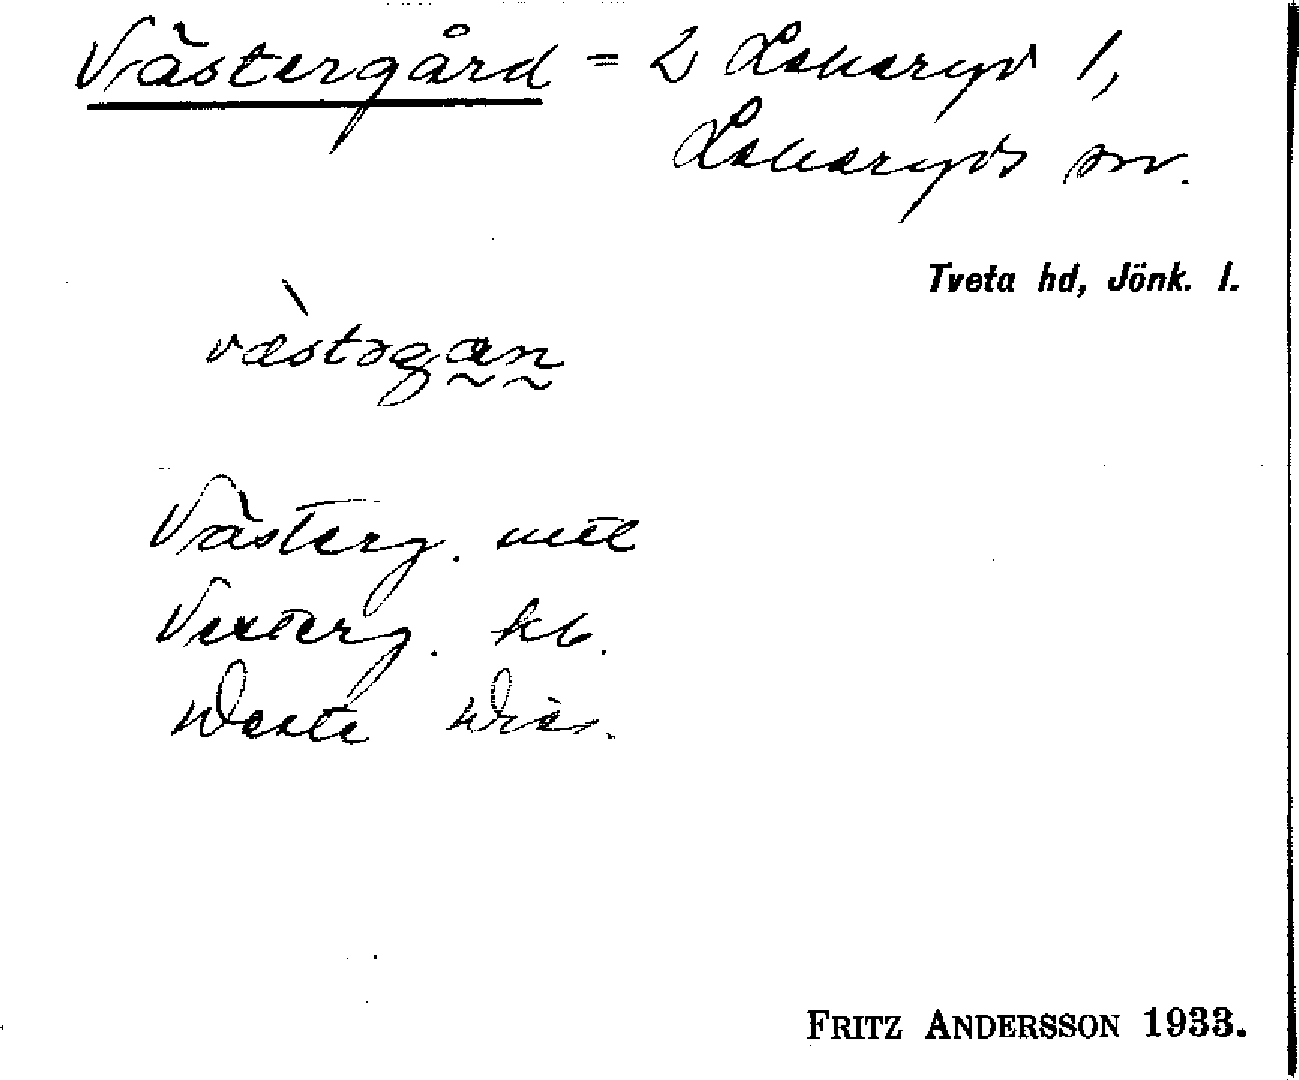 Västergård = 2 Lekaryd 1,
Lekaryds sn.
Tveta hd, Jönk. l.
væ̀stəgan
Västerg. mtl
Vesterg. kb.
FRITZ ANDERSSON 1933.